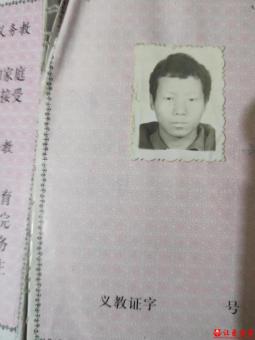 义务教
家庭
接受
教
育
院
务
义教证字 号